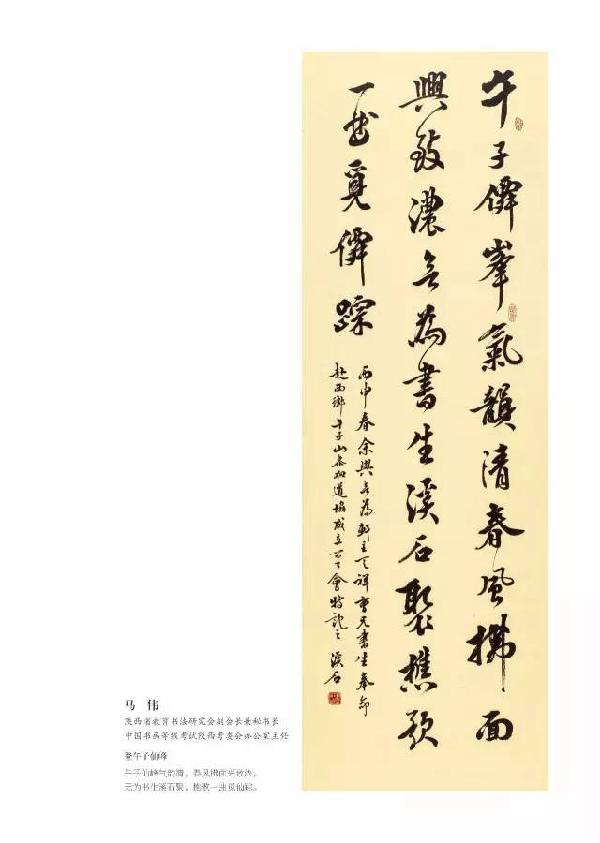 午子僊峯氣韻清春風拂面
興致濃无為書生溪石聚樵歌
一曲覓僊蹤
丙申春余與无為軒主書生奉命
赴西鄉午子山參加道協成立大會特記之 溪石
马 伟
陕西省教育书法研究会副会长兼秘书长
中国书画等级考试陕西考委会办公室主任
登午子仙峰
午子仙峰气韵清，春风拂面兴致浓。
无为书生溪石聚，樵歌一曲觅仙踪。